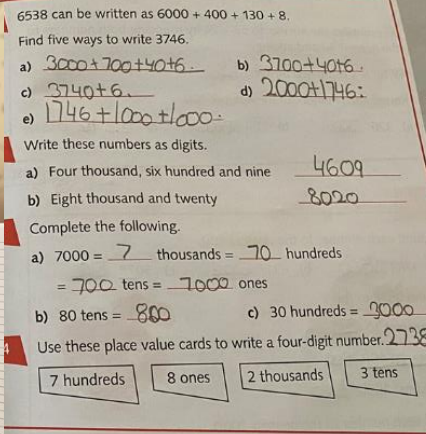 6538 can be written as 6000 + 400 + 130 + 8.
Find five ways to write 3746.
a) 3000+700+40+6. b) 3700+40+6.
c) 3740+6. d) 2000+1746.
e) 1746+1000+1000.
Write these numbers as digits.
a) Four thousand, six hundred and nine 4609
b) Eight thousand and twenty 8020
Complete the following.
a) 7000 = 7 thousands = 70 hundreds
= 700 tens = 7000 ones
b) 80 tens = 800 c) 30 hundreds = 3000
4 Use these place value cards to write a four-digit number. 2738
7 hundreds 8 ones 2 thousands 3 tens